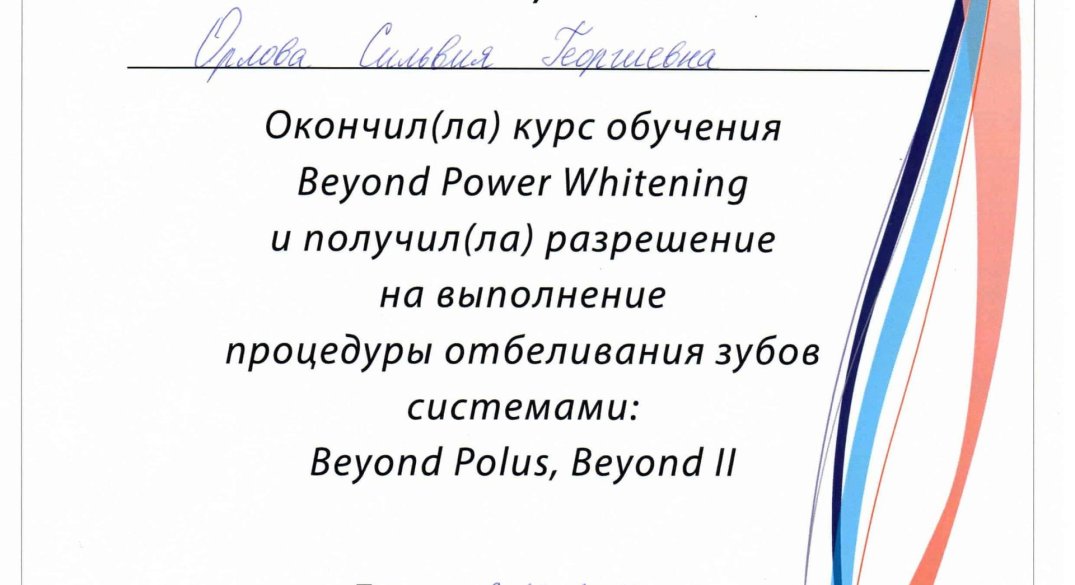 Орлова Сильвия Георгиевна
Окончил(ла) курс обучения
Beyond Power Whitening
и получил(ла) разрешение
на выполнение
процедуры отбеливания зубов
системами:
Beyond Polus, Beyond II